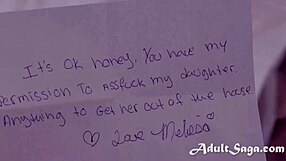 It's OK honey. You have my
Permission To Assfuck my daughter.
Anything to Get her out of the house
♡ Love Melissa ♡
AdultSaga.com